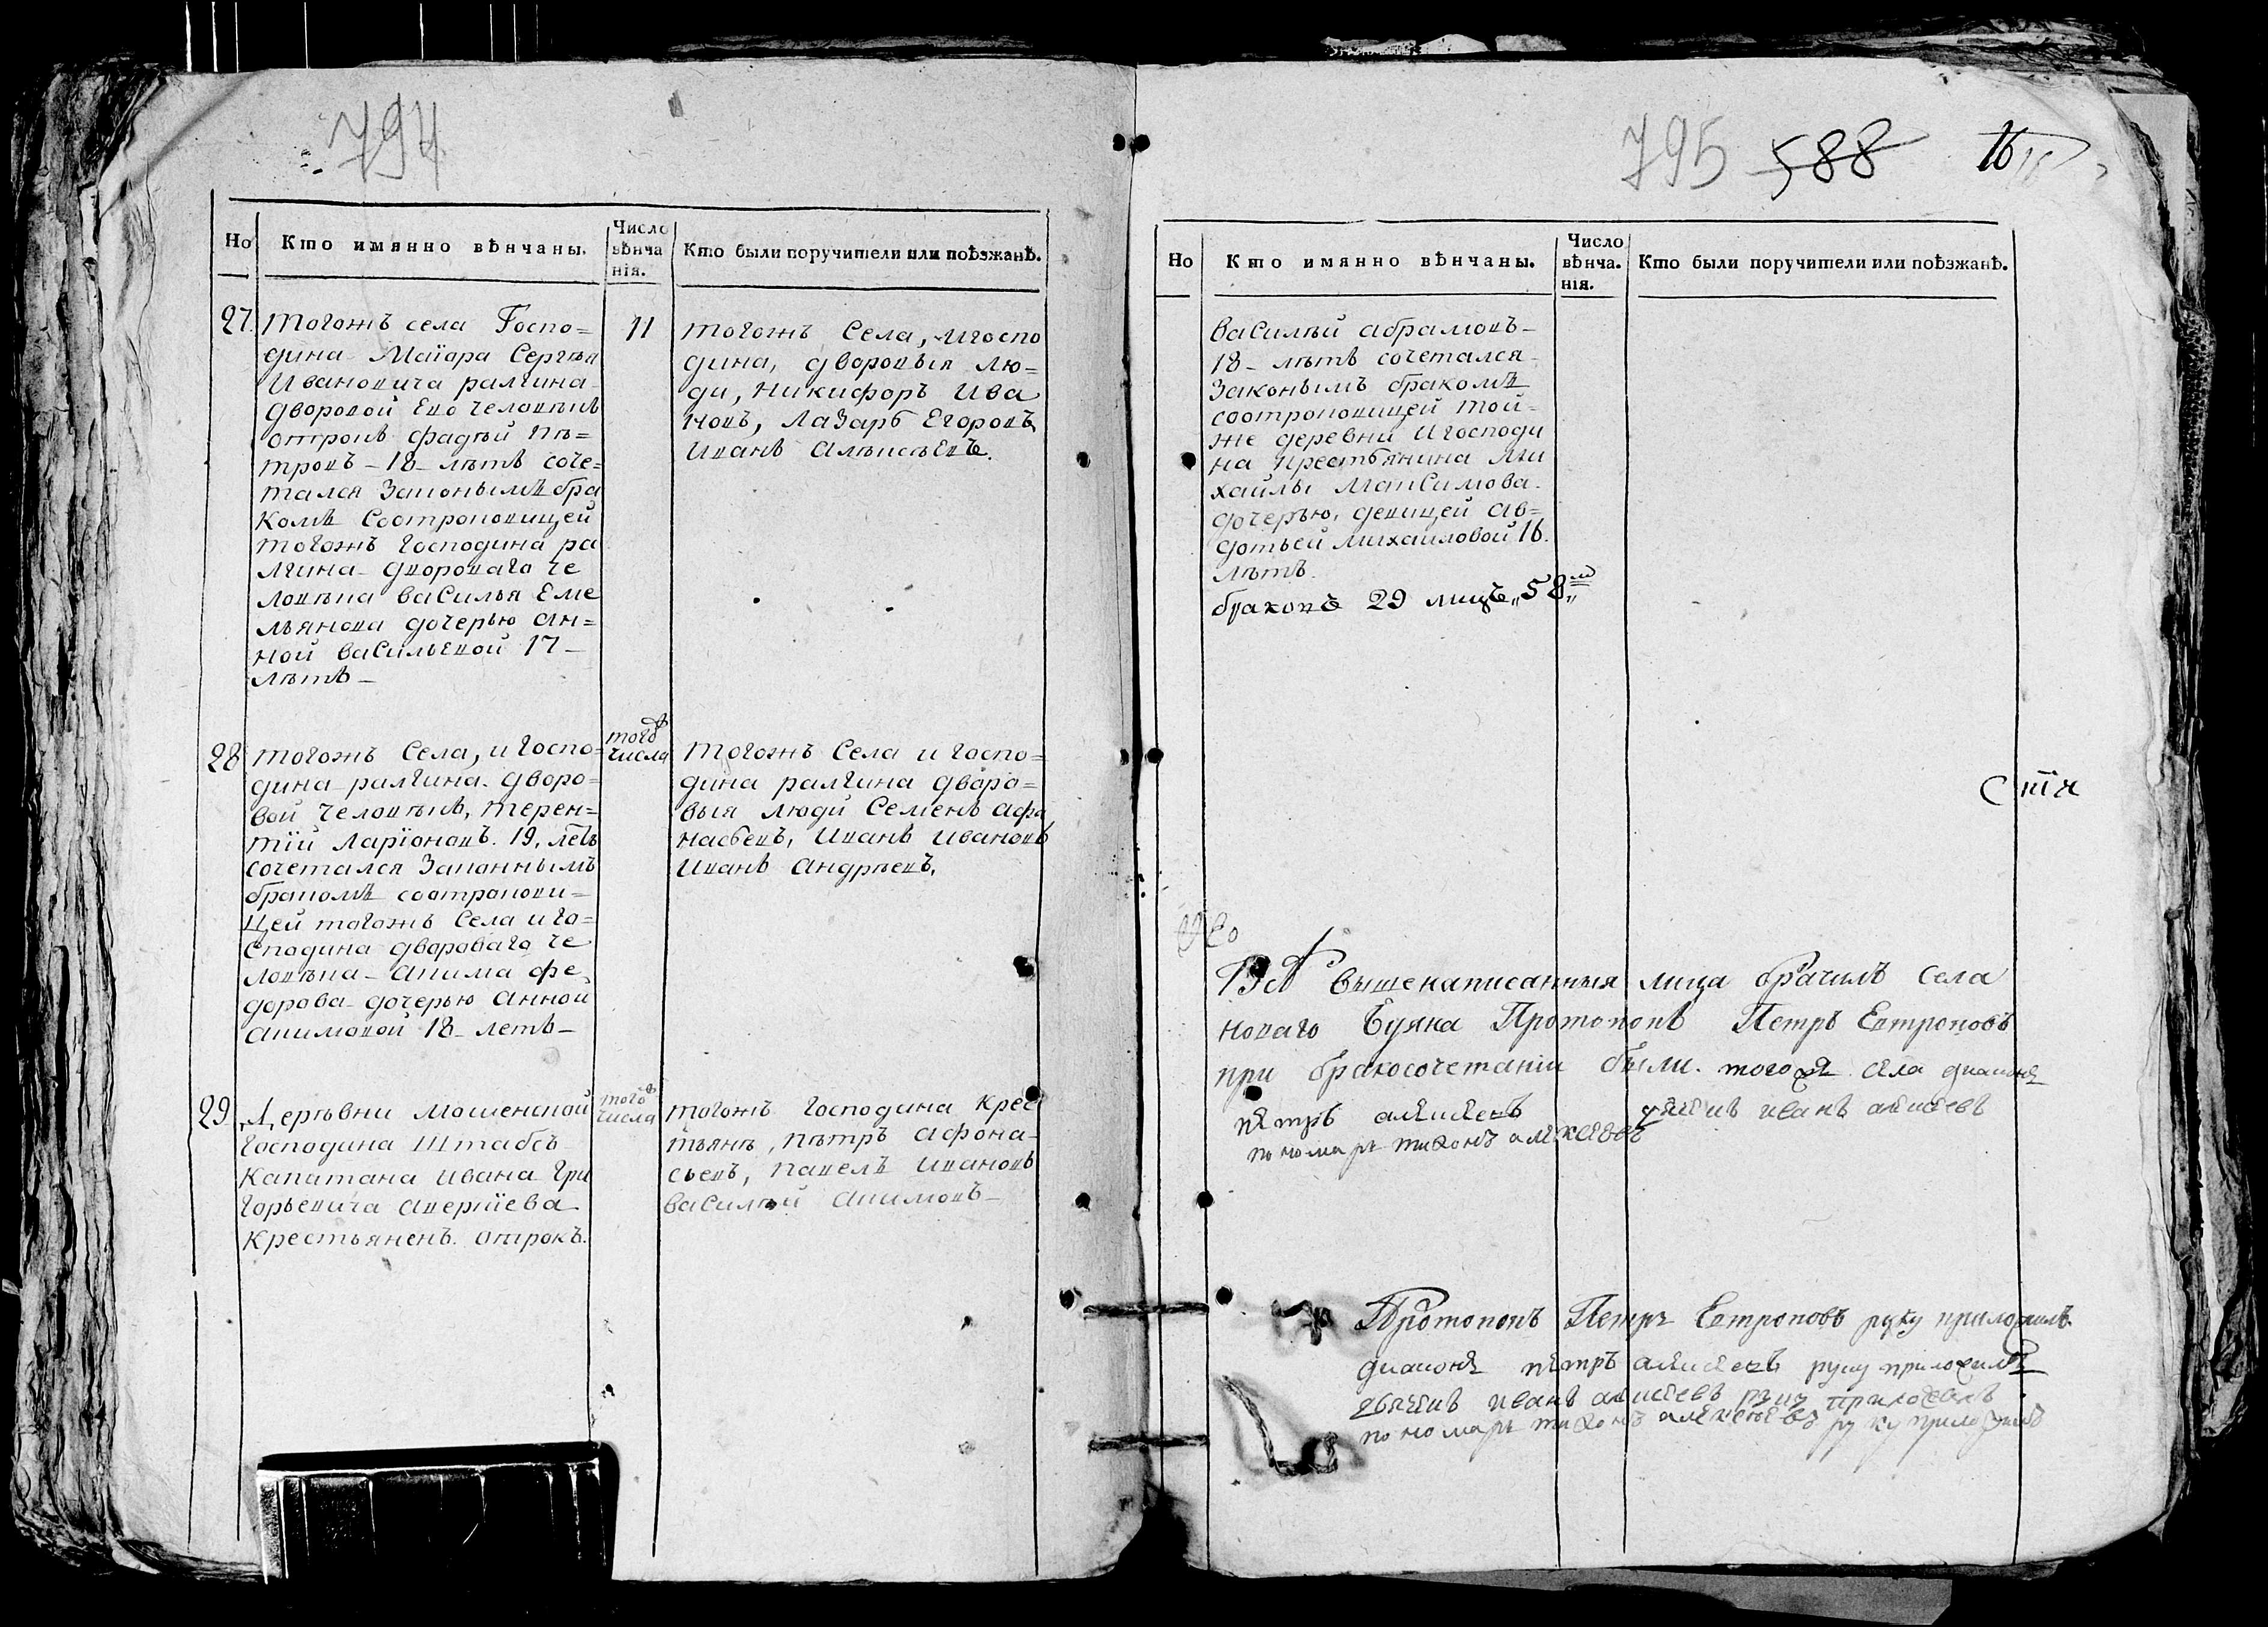 794
Но
Кто имянно вѣнчаны.
Число
вѣнча
нія.
Кто были поручители или поѣзжанѣ.
27.
тогожъ села Госпо=
дина Маіара Сергѣя
Ивановича ралгина
дворовой Ево человѣкъ
отрокъ фадѣй пѣ=
тровъ - 18 - лѣтъ соче=
тался Законымъ бра
комъ Соотроковицей
тогожъ господина ра
лгина двороваго че
ловѣка василья Еме
льянова дочерью Ан=
ной васильевой 17 -
лѣтъ -
11
тогожъ Села, игоспо
дина, дворовыя лю=
ди, никифоръ Ива
новъ, лазарь Егоровъ
Иванъ Алѣксѣевъ.
28
тогожъ Села, и госпо=
дина ралгина. дворо=
вой человѣкъ, терен=
тий ларіоновъ. 19, летъ
сочетался Законнымъ
бракомъ соотрокови=
цей тогожъ Села и го=
сподина двороваго че
ловѣка Акима фе
дорова дочерью Анной
Акимовой 18 летъ -
того
числа
тогожъ Села и госпо=
дина ралгина дворо=
выя люди Семенъ Афа
насьевъ, Иванъ Ивановъ
Иванъ Андрѣевъ.
29
дерѣвни Мошенской
господина Штабсъ
капитана Ивана Гри
горьевича Аверкіева
крестьяненъ. отрокъ.
того
числа
тогожъ господина крес
тьянъ, пѣтръ Афона
сьевъ, павелъ Ивановъ
василѣй Акимовъ -
795 588 16
Но
Кто имянно вѣнчаны.
Число
вѣнча.
нія.
Кто были поручители или поѣзжанѣ.
василѣй абрамовъ -
18 - лѣтъ сочетался
Законымъ бракомъ
соотроковицей той=
же деревни Игосподи
на крестьянина Ми
хайлы Максимова.
дочерью, девицей Ав=
дотьей михаиловой 16.
лѣтъ.
браковъ 29 лицъ „58„
Всѣ вышенаписанныя лица брачилъ села
новаго Буяна Протопопъ Петръ Евтроповъ
при бракосочетаніи были. тогожъ села диаконъ
пѣтръ алексѣевъ иванъ алексѣевъ
пономарь тихонъ алексѣевъ
Протопопъ Петръ Евтроповъ руку приложилъ
диаконъ пѣтръ алексѣевъ руку приложилъ
иванъ алексѣевъ руку приложилъ
пономарь тихонъ алексѣевъ руку приложилъ